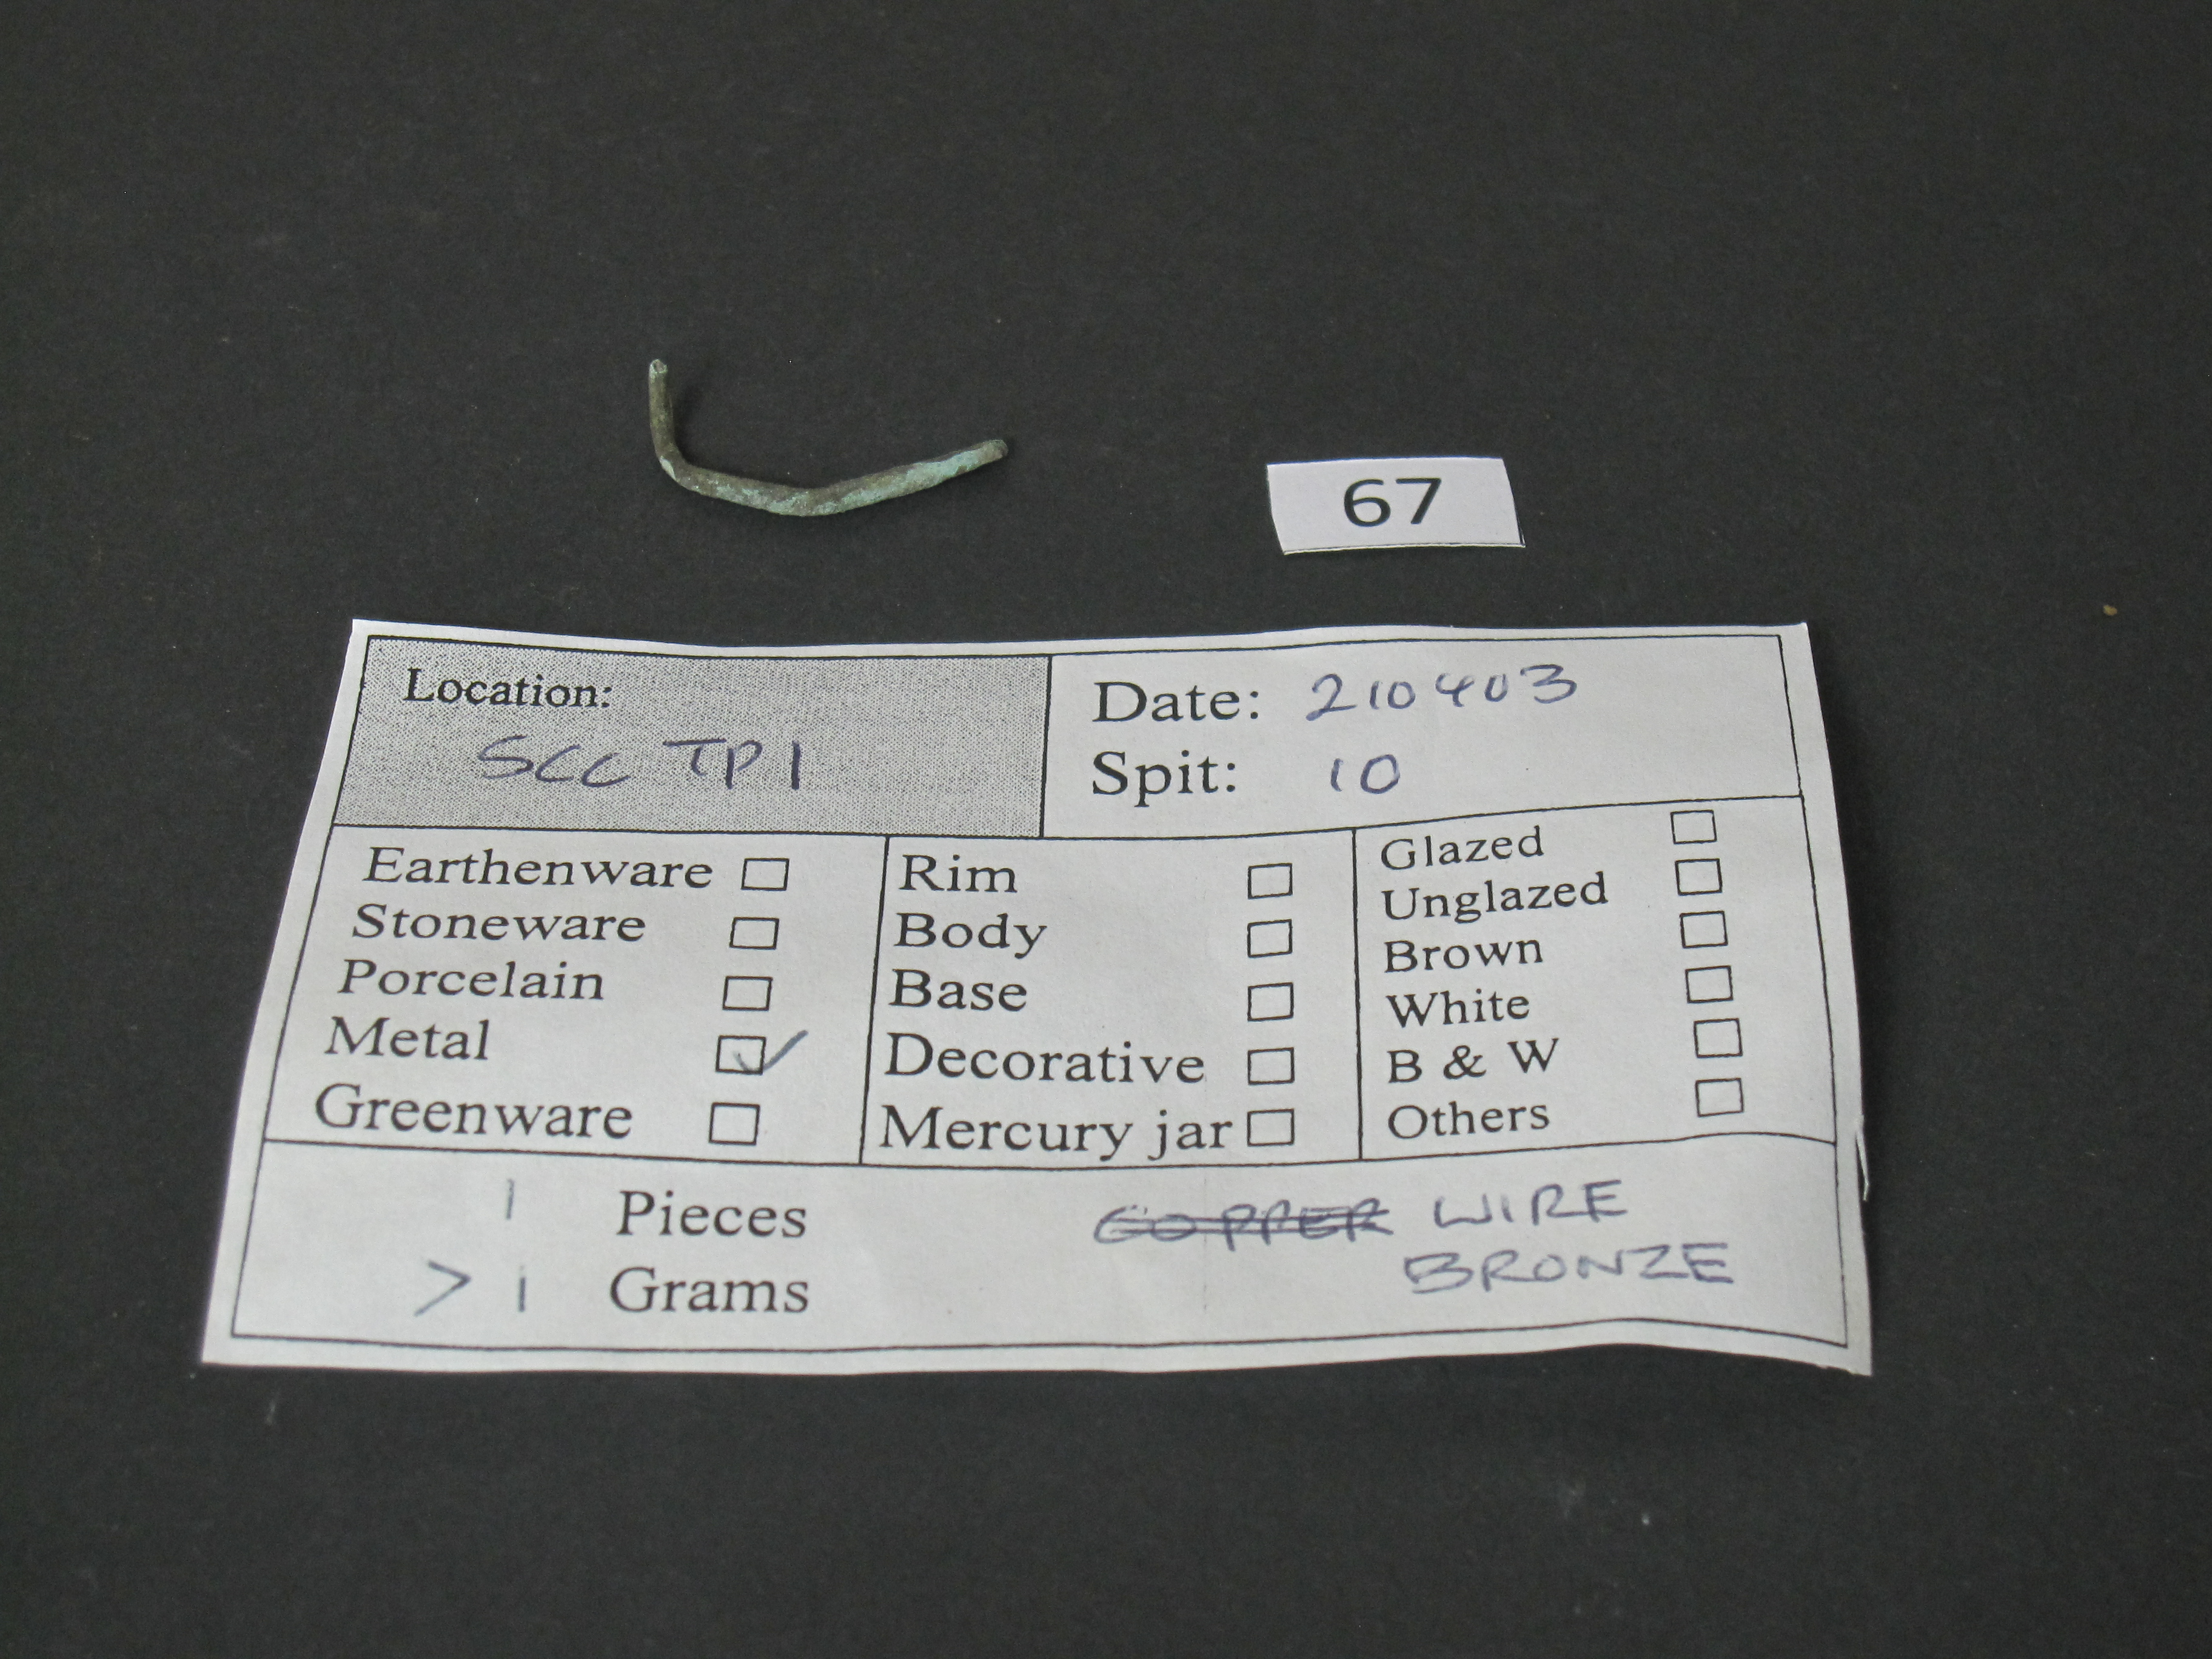 67
Location:
SCC TP1
Date: 210403
Spit: 10
Earthenware
Stoneware
Porcelain
Metal ✓
Greenware
Rim
Body
Base
Decorative
Mercury jar
Glazed
Unglazed
Brown
White
B & W
Others
1 Pieces
> 1 Grams
COPPER WIRE
BRONZE